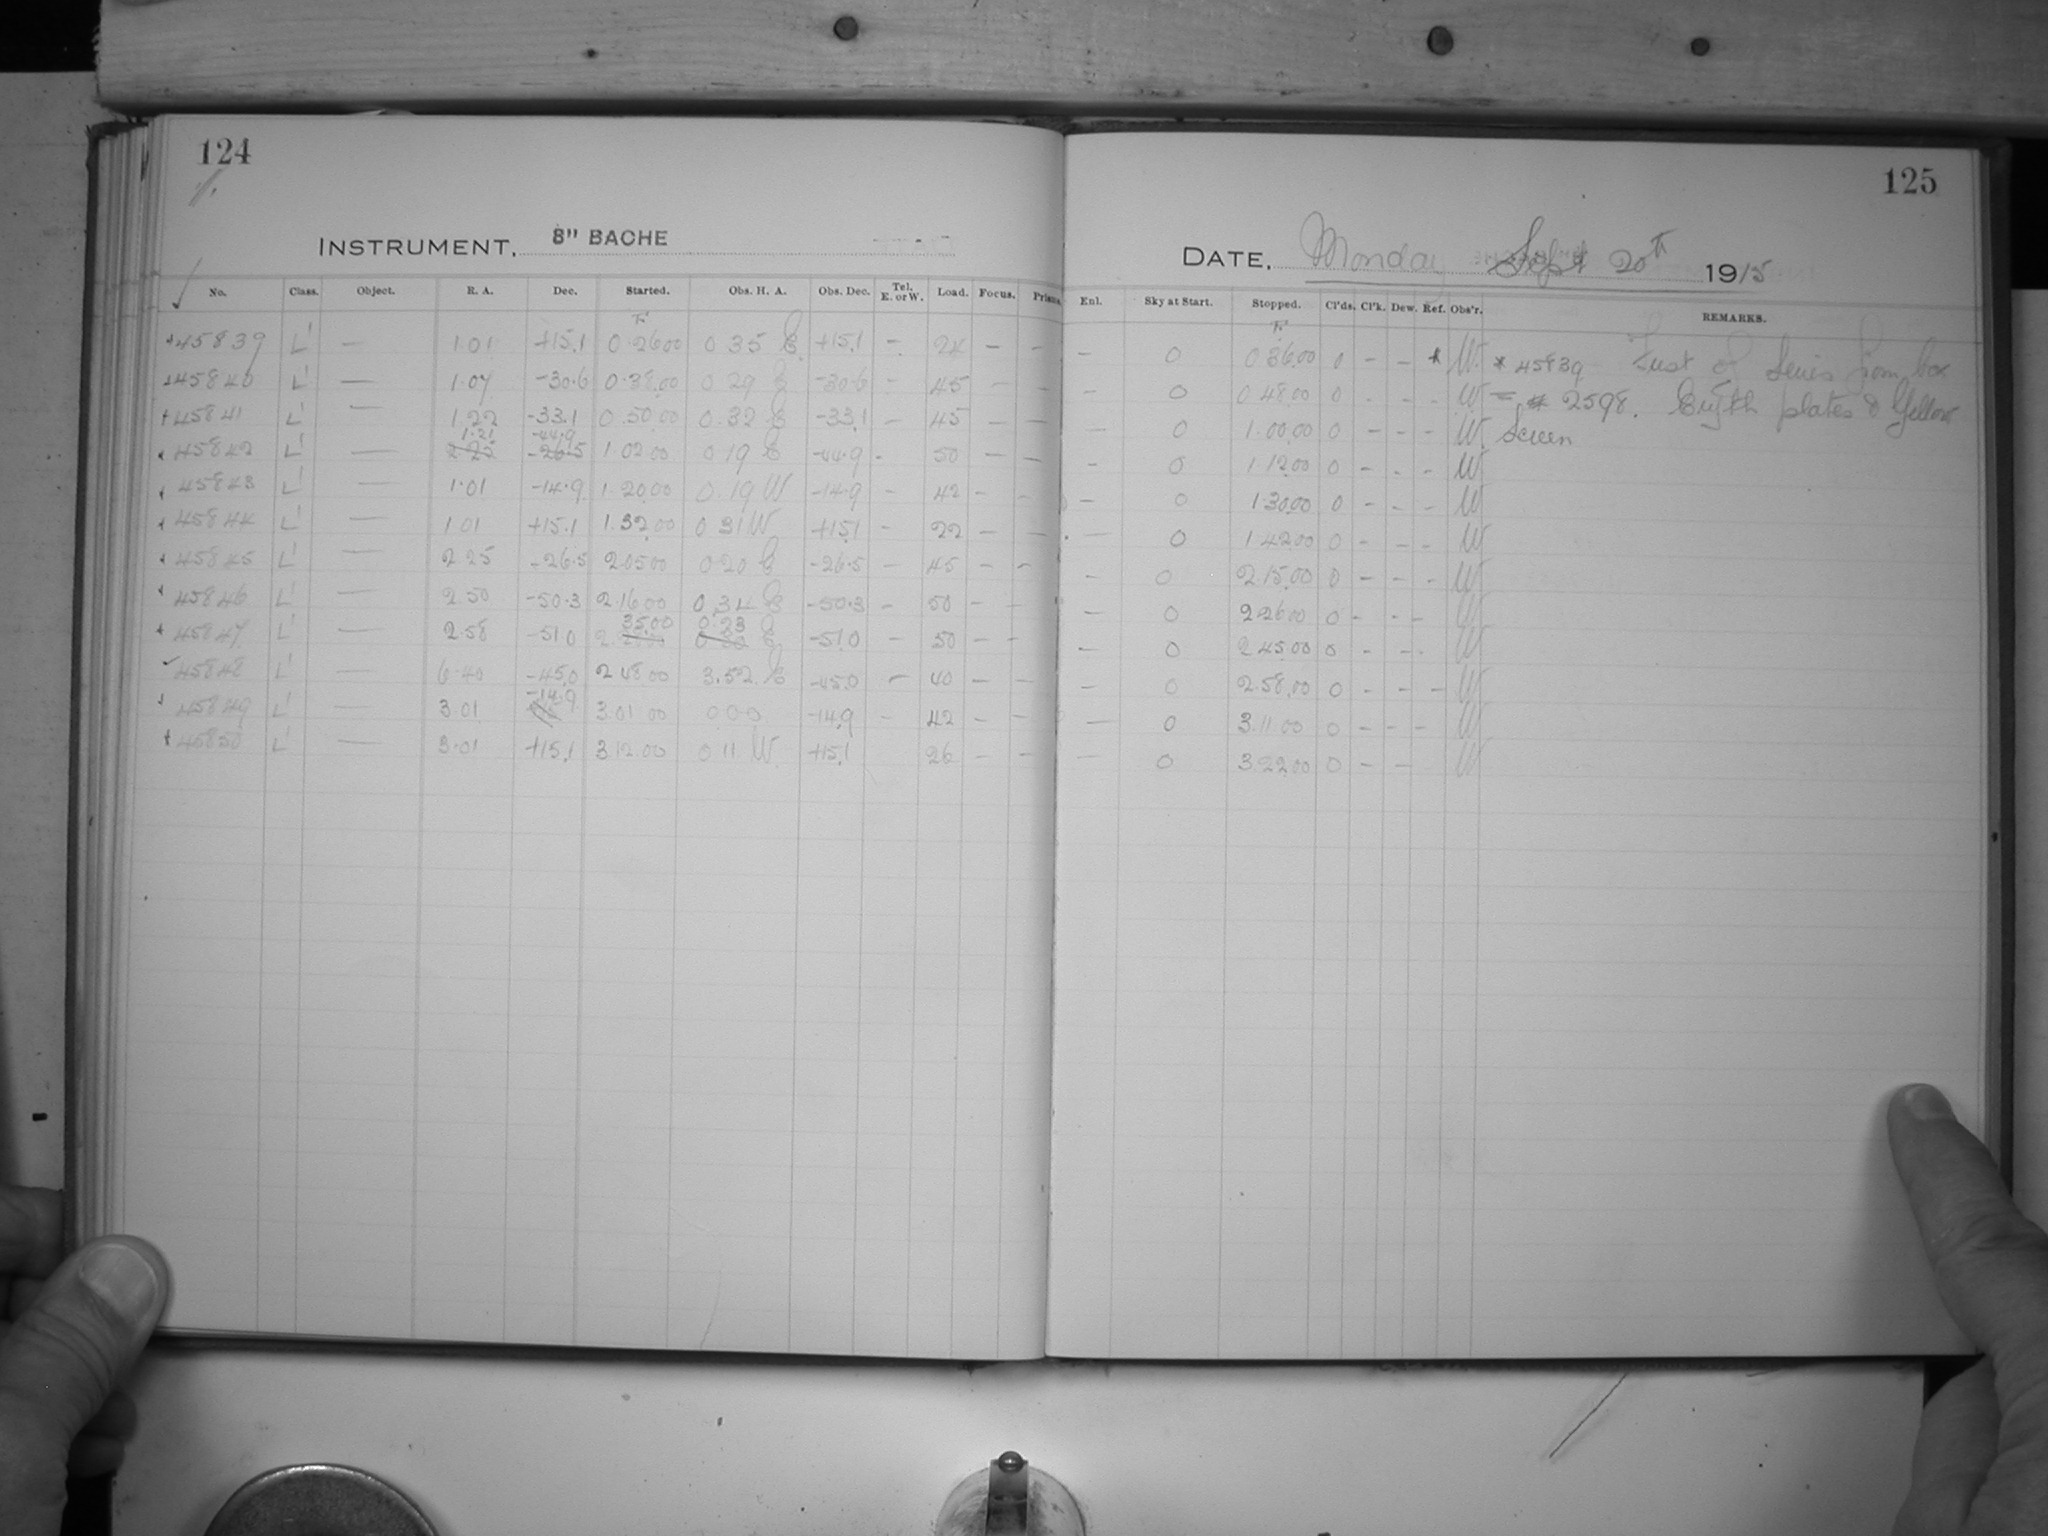 124
INSTRUMENT, 8" BACHE
No. Class. Object. R. A. Dec. Started. Obs. H. A. Obs. Dec. Tel. E. or W. Load. Focus. Prism.
45839 L' — 1.01 +15.1 0.26.00 0 35 E +15.1 — 24 — —
45840 L' — 1.07 -30.6 0.38.00 0 29 E -30.6 — 45 — —
45841 L' — 1.22 -33.1 0.50.00 0.32 E -33.1 — 45 — —
1.21 -44.9
45842 L' — 2 25 -26.5 1.02.00 0 19 E -44.9 - 50 — —
45843 L' — 1.01 -14.9 1.20.00 0.19 W -14.9 — 42 — —
45844 L' — 1.01 +15.1 1.32.00 0 31 W +15.1 — 22 — —
45845 L' — 2 25 -26.5 2.05.00 0 20 E -26.5 — 45 — —
45846 L' — 2.50 -50.3 2.16.00 0.34 E -50.3 — 50 — —
35.00 0.23
45847 L' — 2.58 -51.0 2. E -51.0 — 50 — —
45848 L' — 6.40 -45.0 2 48.00 3.52 E -45.0 — 40 — —
-14.9
45849 L' — 3.01 3.01.00 0 0 0 -14.9 — 42 — —
45850 L' — 3.01 +15.1 3.12.00 0 11 W +15.1 26 — —
125
DATE, Monday Sept 20th 1915
Enl. Sky at Start. Stopped. Cl'ds. Cl'k. Dew. Ref. Obs'r. REMARKS.
— 0 0.36.00 0 - - * W. * 45839 First of Series from box
— 0 0 48.00 0 - - - W = # 2598. Eryth plates & Yellow
— 0 1.00.00 0 - - - W. Screen
— 0 1.12.00 0 - - - W
— 0 1.30.00 0 - - - W
— 0 1.42.00 0 - - - W
— 0 2.15.00 0 - - - W
— 0 2.26.00 0 - - - W
— 0 2.45.00 0 - - - W
— 0 2.58.00 0 - - - W
— 0 3.11.00 0 - - - W
— 0 3.22.00 0 - - W